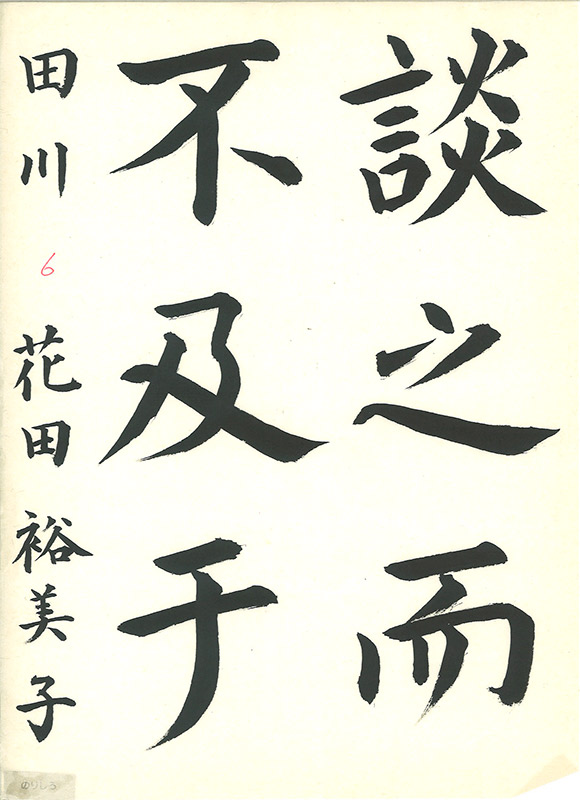 談之而
不及于
田川 6 花田裕美子
のりしろ